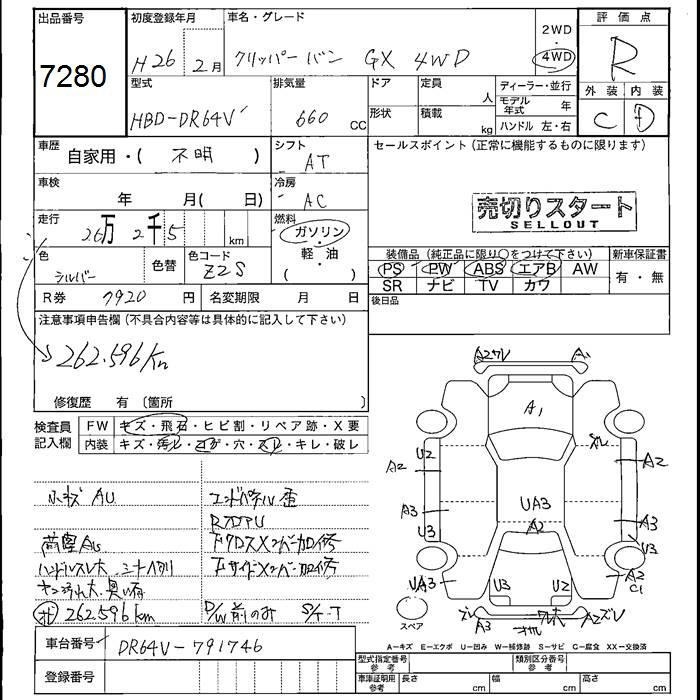 出品番号
7280
初度登録年月
H26 2月
車名・グレード
クリッパーバン GX 4WD
2WD
・
4WD
評価点
R
型式
HBD-DR64V
排気量
660 CC
ドア
形状
定員
人
積載
kg
ディーラー・並行
モデル年式 年
ハンドル 左・右
外装 内装
C D
車歴
自家用・( 不明 )
シフト
AT
セールスポイント (正常に機能するものに限ります)
車検
年 月( 日)
冷房
AC
売切りスタート
SELLOUT
走行
26万2千5 km
燃料
ガソリン
・
軽・油
色
シルバー
色替
色コード
Z2S
装備品 (純正品に限り○をつけて下さい)
新車保証書
PS PW ABS エアB AW
有・無
SR ナビ TV カワ
R券 7920 円
名変期限 月 日
後日品
注意事項申告欄 (不具合内容等は具体的に記入して下さい)
262.596Km
修復歴 有 (箇所 )
検査員記入欄
FW キズ・飛石・ヒビ割・リペア跡・X要
内装 キズ・汚レ・コゲ・穴・スレ・キレ・破レ
小キズ AU
エンドパネル歪
RフロアU
荷室AU
下クロスメンバー加修
ハンドルスレ大
下サイドメンバー加修
262.596km
P/W前のみ
車台番号
DR64V-791746
登録番号
A2ワレ A1
A1
U2
ズレ
A2
A2
A3
UA3
A3
U3
A2
U3
UA3
U3
U2
A2
C1
スペア
ズレ
A3
ワレ大
A2ズレ
A…キズ E…エクボ U…凹み W…補修跡 S…サビ C…腐食 XX…交換済
型式指定番号
参考
類別区分番号
参考
車庫証明用
参考
長さ cm
幅 cm
高さ cm